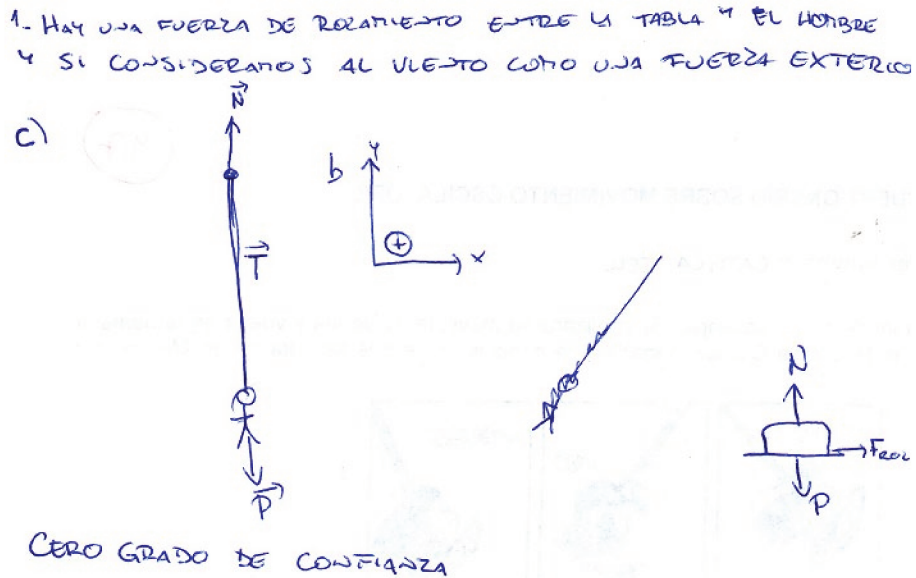 1- HAY UNA FUERZA DE ROZAMIENTO ENTRE LA TABLA Y EL HOMBRE
Y SI CONSIDERAMOS AL VIENTO COMO UNA FUERZA EXTERIO
N
c)
b
Y
+
T
X
N
FROZ
P
P
CERO GRADO DE CONFIANZA